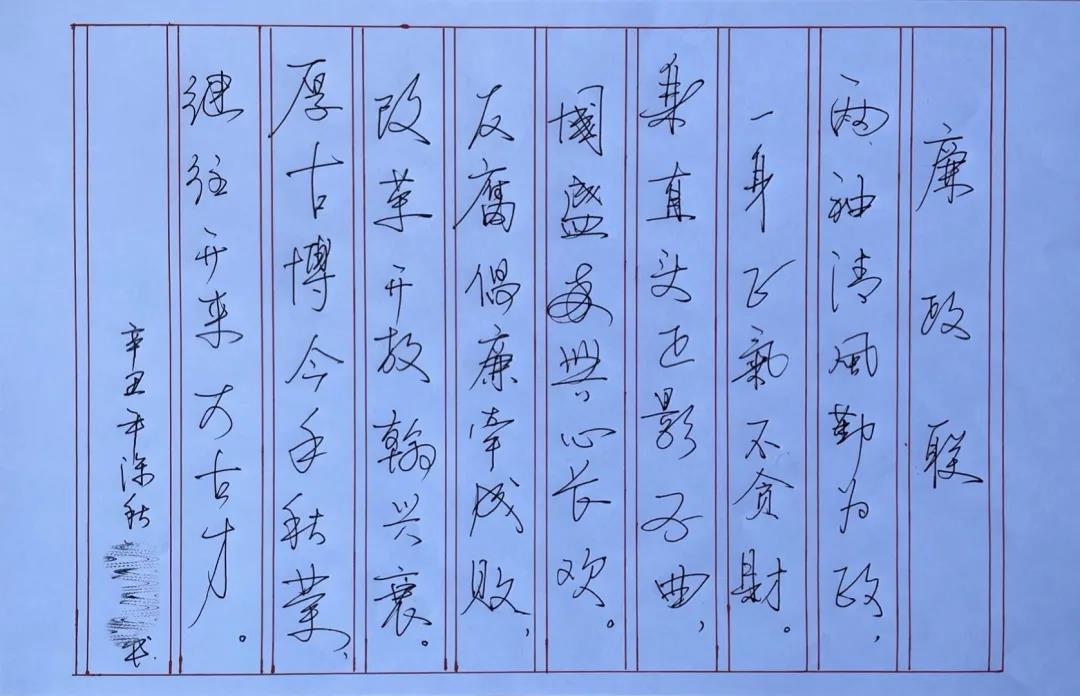 廉政联
两袖清风勤为政，
一身正气不贪财。
直头正影不曲，
國盛興心长欢。
反腐倡廉牵成败，
改革开放翰兴衰。
厚古博今千秋業，
继往开来万古才。
辛丑年深秋书